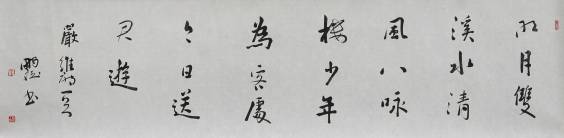 明月雙
溪水清
風八咏
樓少年
為客處
今日送
君遊
嚴維詩一首
书